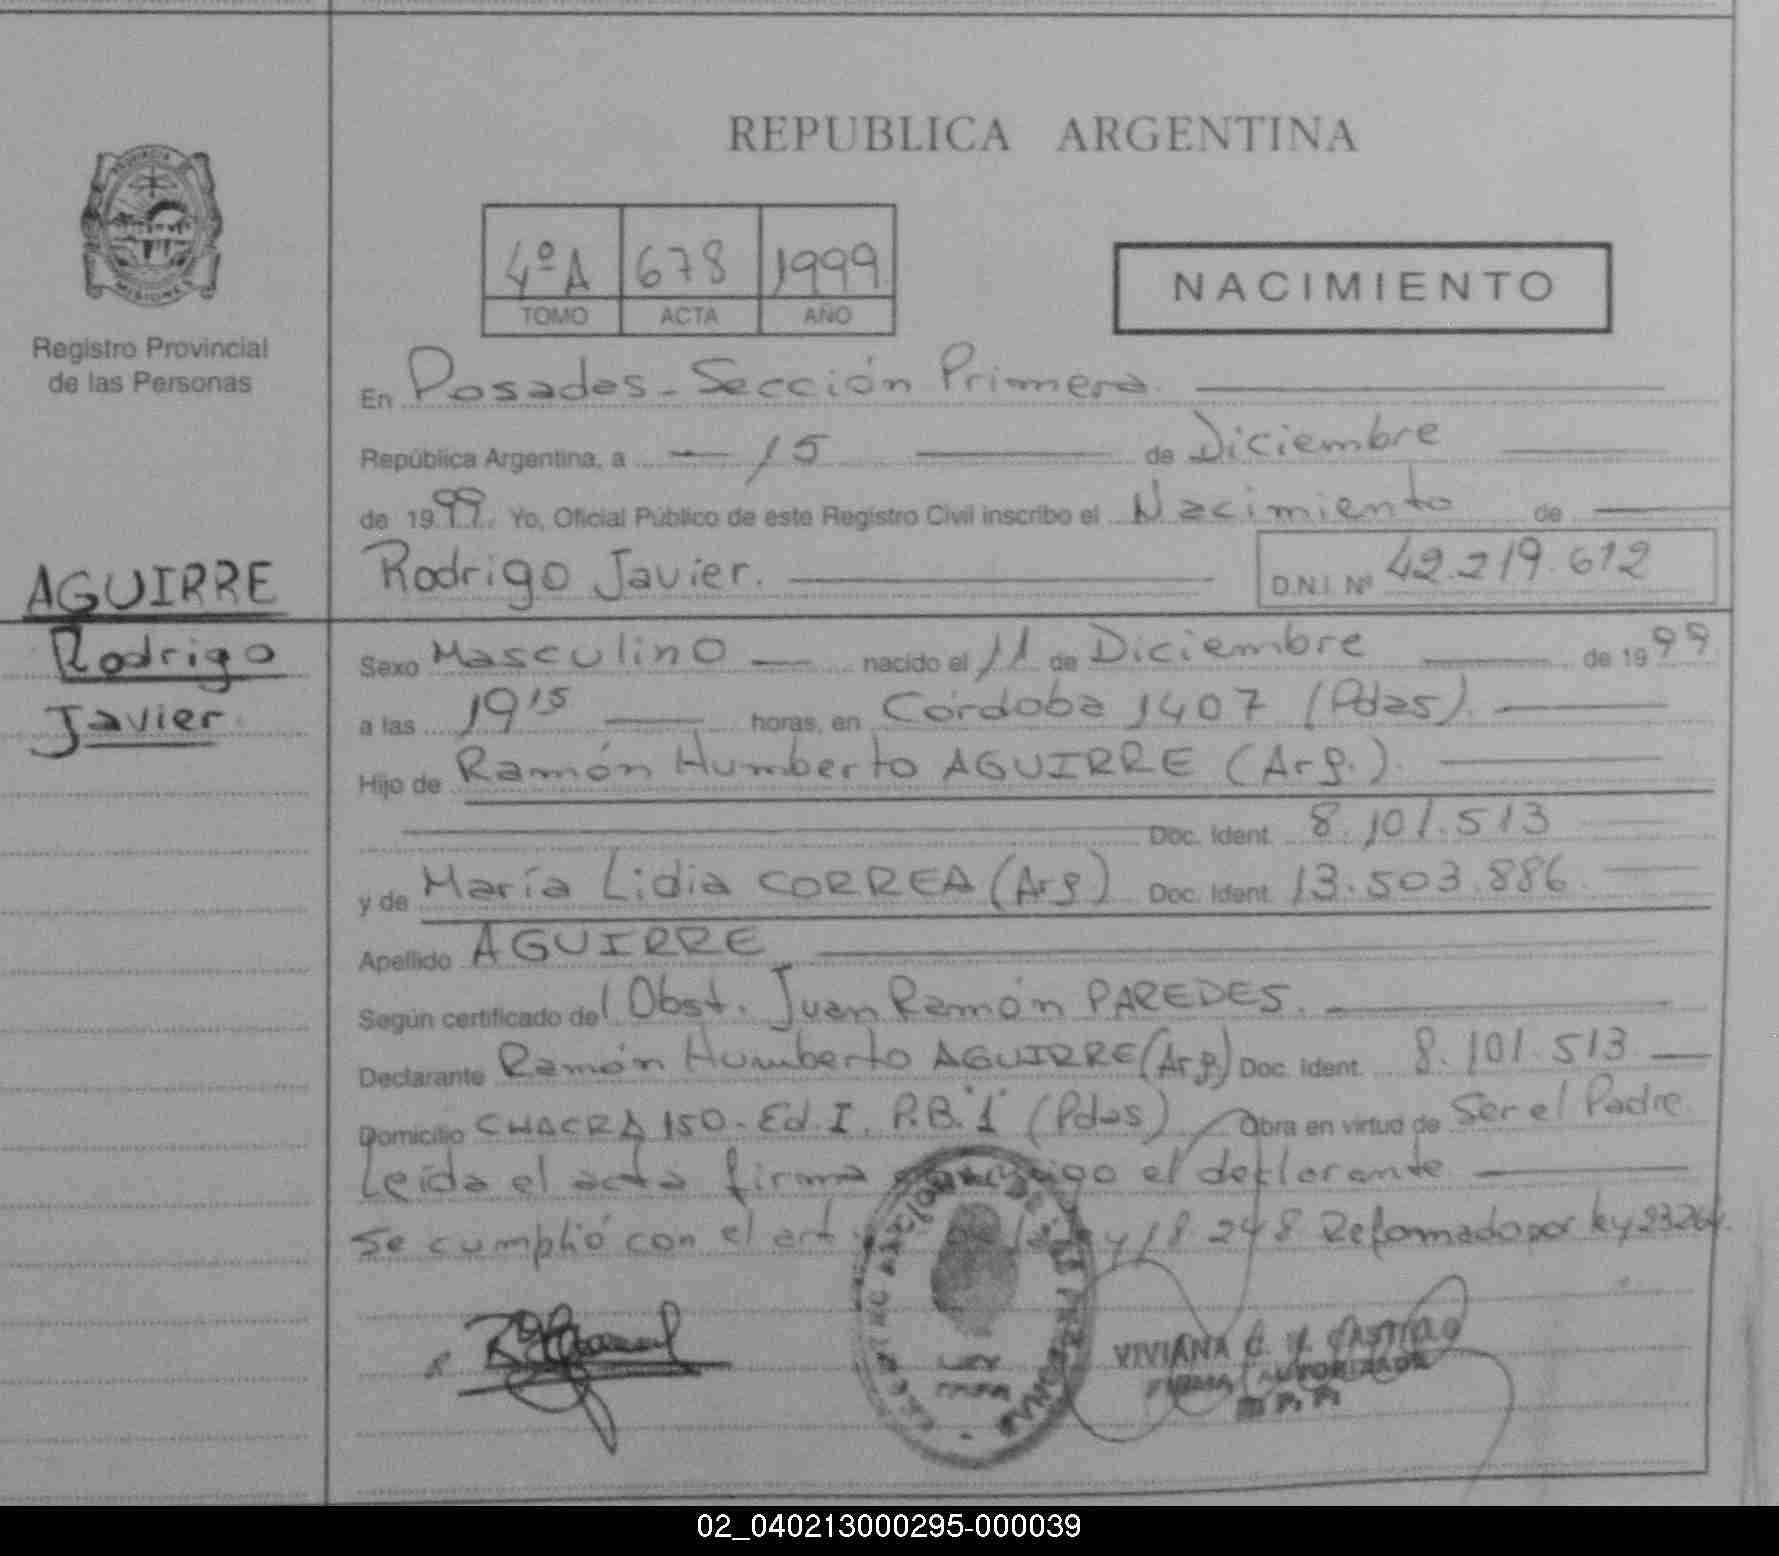 REPUBLICA ARGENTINA
PROVINCIA
MISIONES
Registro Provincial
de las Personas
4º A 678 1999
TOMO ACTA AÑO
NACIMIENTO
En Posadas - Sección Primera.
República Argentina, a 15 de Diciembre
de 1999. Yo, Oficial Público de este Registro Civil inscribo el Nacimiento de
Rodrigo Javier. D.N.I. Nº 42.219.612
AGUIRRE
Rodrigo
Javier.
Sexo Masculino nacido el 11 de Diciembre de 1999
a las 19 15 horas, en Córdoba 1407 (Pdas).
Hijo de Ramón Humberto AGUIRRE (Arg.).
Doc. Ident. 8.101.513
y de María Lidia CORREA (Arg) Doc. Ident. 13.503.886.
Apellido AGUIRRE
Según certificado de l Obst. Juan Ramón PAREDES.
Declarante Ramón Humberto AGUIRRE (Arg) Doc. Ident. 8.101.513
Domicilio CHACRA 150 - Ed. I. P.B. "1" (Pdas) Obra en virtud de Ser el Padre.
Leída el acta firma conmigo el declarante
Se cumplió con el art 18.248 Reformado por Ley 23264.
VIVIANA C. V. CASTILLO
FIRMA AUTORIZADA
R.P.P.
02_040213000295-000039